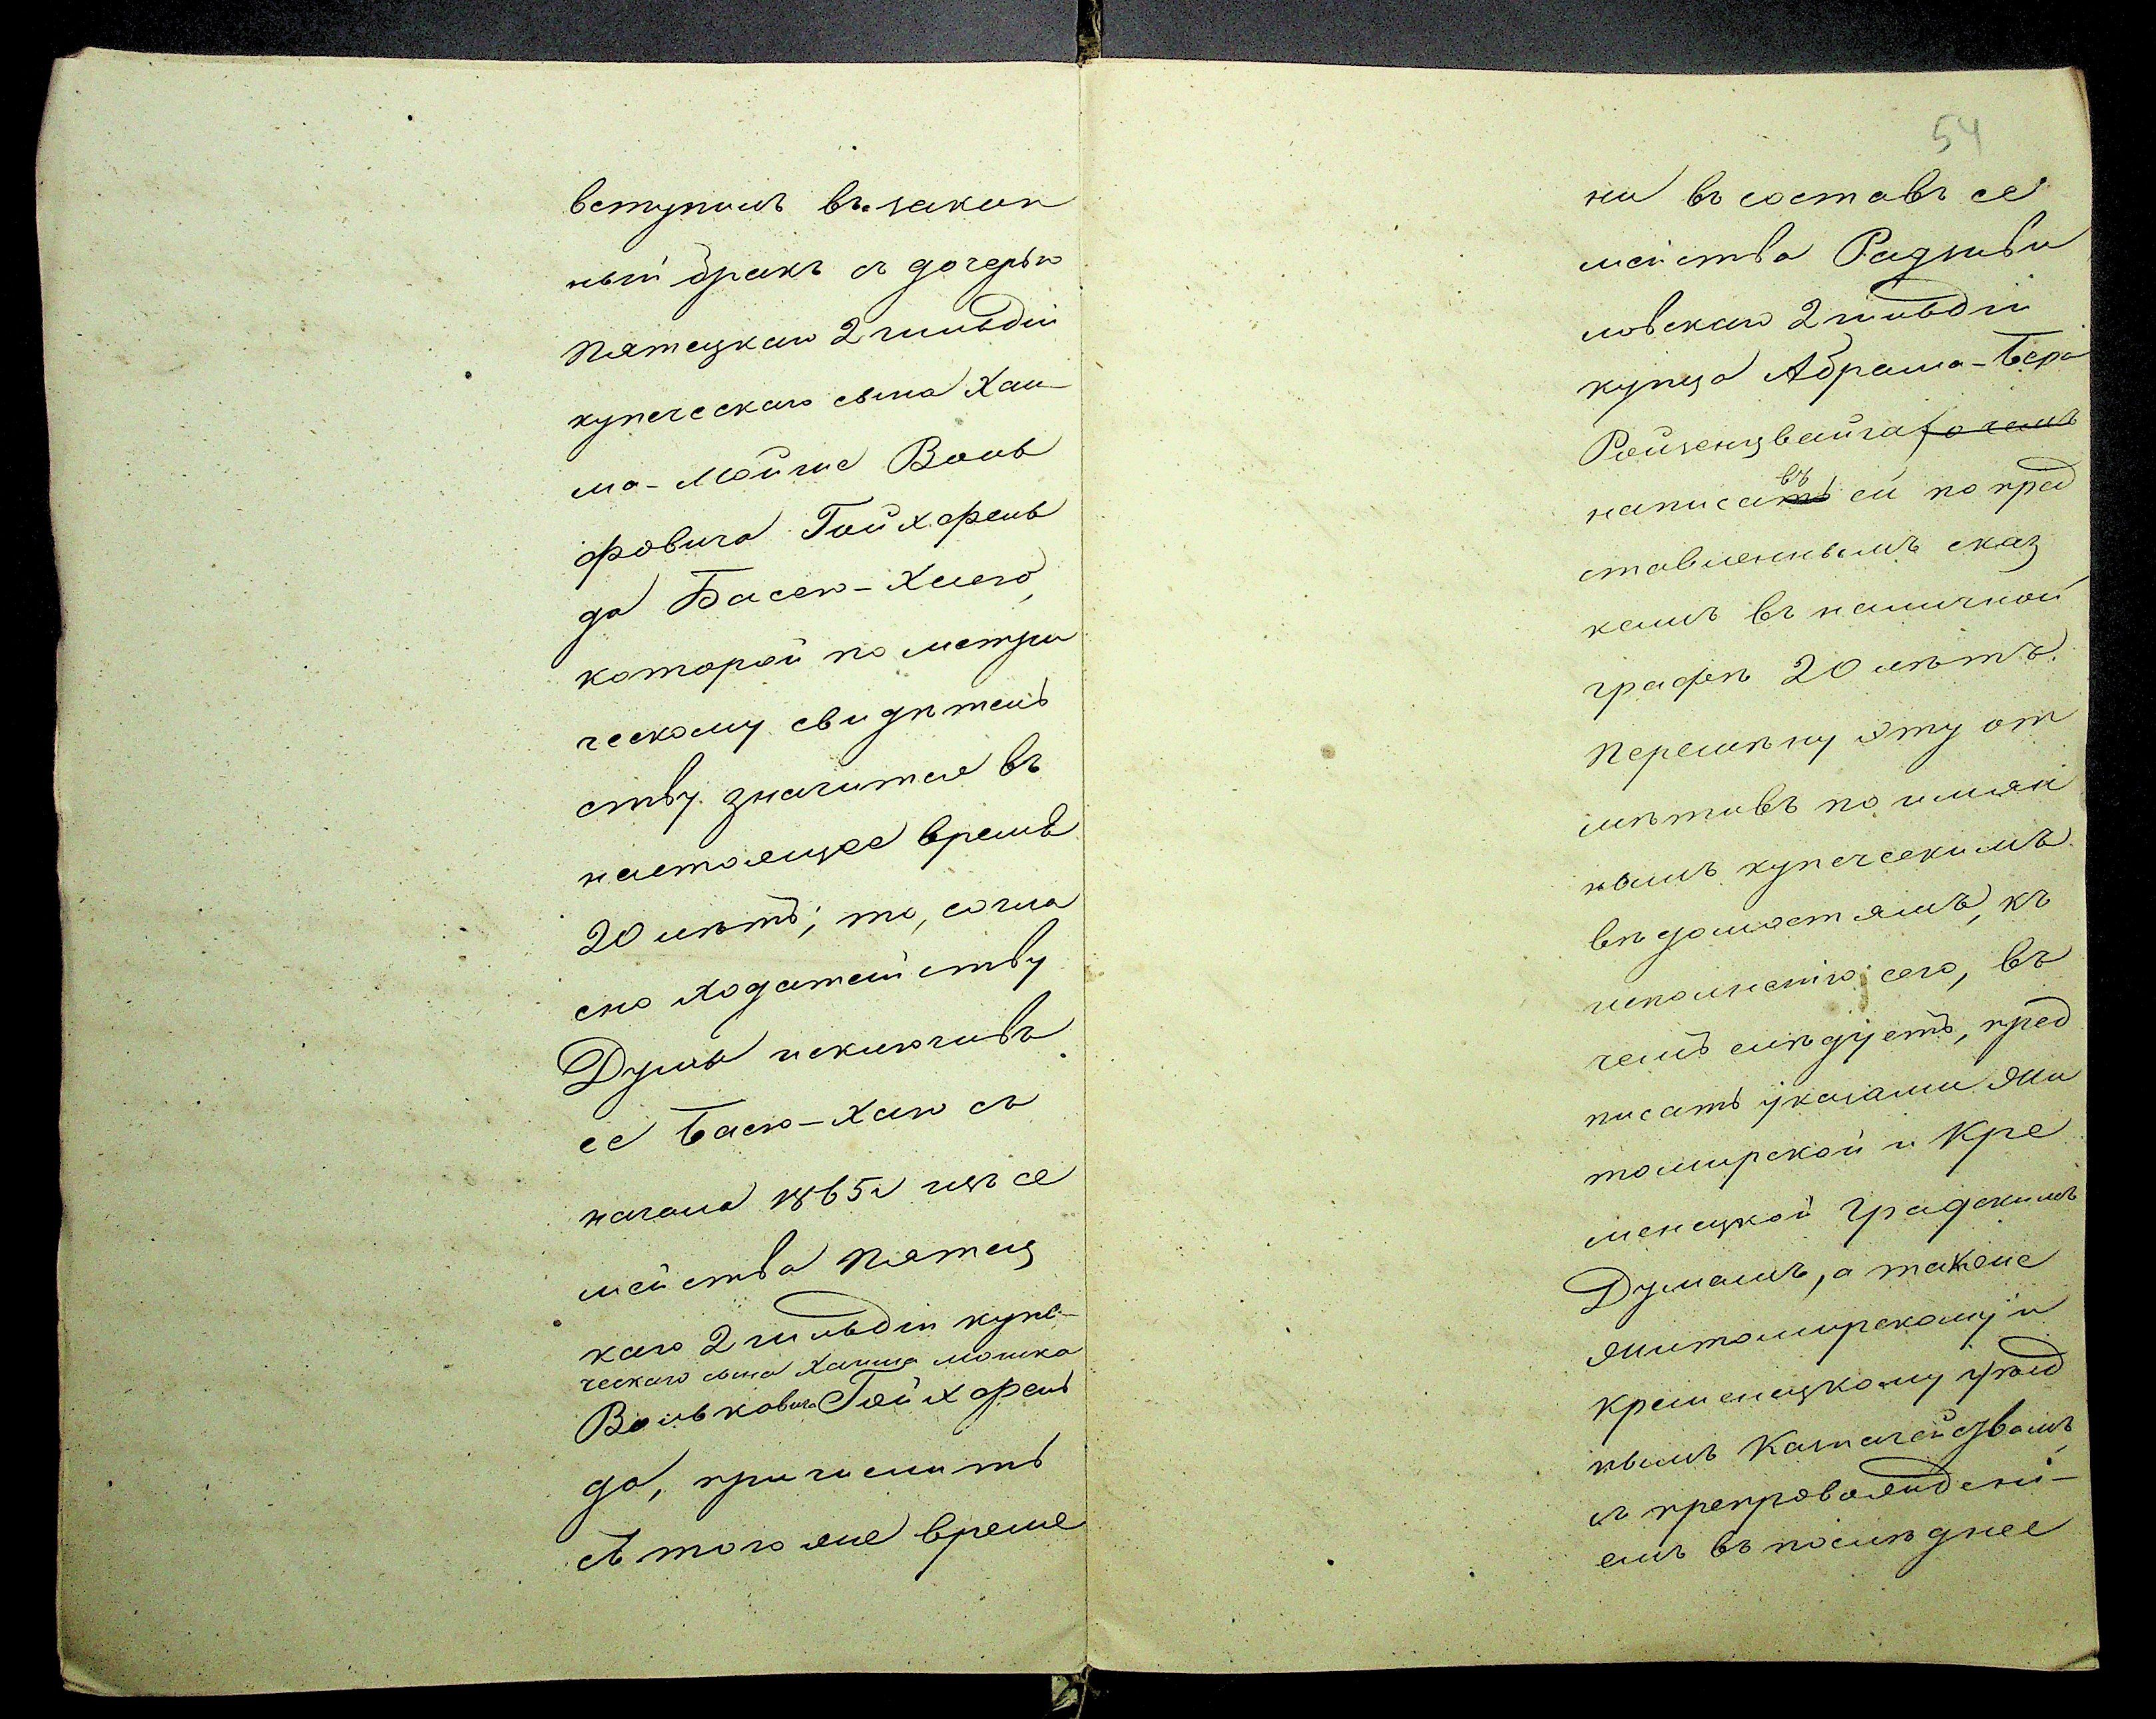 вступилъ въ закон
ный бракъ съ дочерью
Пятецкаго 2 гильдіи
купеческаго сына Хаи-
ма-Мойше Воль
фовича Гойхфель
да Басею-Хаею,
которой по метри
ческому свидѣтель
ству значится въ
настоящее время
20 лѣтъ; то, согла
сно ходатайству
Думы исключивъ
ее Басю-Хаю съ
начала 1865 г изъ се
мейства Пятец
каго 2 гильдіи купе-
ческаго сына Хаима Мошка
Вольковича Гойхфель
да, причислить
съ того же време
54
ни въ составъ се
мейства Радзиви
ловскаго 2 гильдіи
купца Абрама-Бера
Ройзенцвайга о чемъ
написавъ ей по пред
ставленнымъ сказ
камъ въ наличной
графѣ 20 лѣтъ.
Перемѣну эту от
мѣтивъ по имян
нымъ купеческимъ
вѣдомостямъ, къ
исполнению сего, въ
чемъ слѣдуетъ, пред
писать указами Жи
томирской и Кре
менецкой Градскимъ
Думамъ, а также
Житомирскому и
Кременецкому уѣзд
нымъ Казначействамъ
съ препровожденi-
емъ въ послѣднее